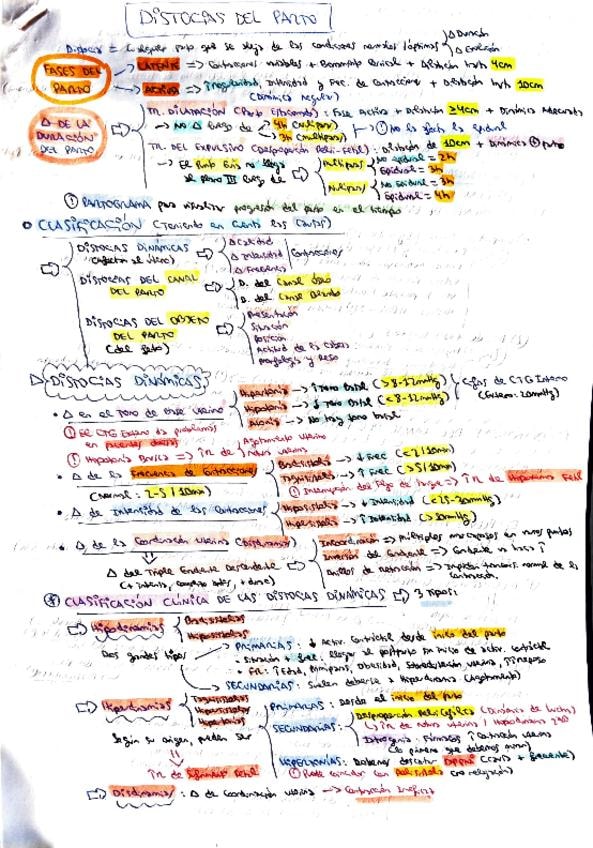 DISTOCIAS DEL PARTO
Distocia = Cualquier parto que se aleja de las condiciones normales/óptimas
Δ Duración
Δ Evolución
FASES DEL PARTO
LATENTE => Contracciones variables + Borramiento cervical + Dilatación hasta 4cm
ACTIVA => ↑regularidad, Intensidad y Frec. de contracciones + Dilatación hasta 10cm
(Dinámica regular)
Δ DE LA DURACIÓN DEL PARTO
TR. DILATACIÓN (Parto Estacionado): Fase Activa + Dilatación ≥4cm + Dinámica Adecuada
→ No Δ luego de
4h (nulíparas)
3h (multíparas)
→ ① No le afecta la epidural
TR. DEL EXPULSIVO (Desproporción Pelvi-Fetal): Dilatación de 10cm + Dinámica
→ El Punto Guía no llega al plano III luego de
Multíparas
No epidural = 2h
Epidural = 3h
Nulíparas
No Epidural = 3h
Epidural = 4h
① PARTOGRAMA para visualizar progresión del parto en el tiempo
CLASIFICACIÓN (Teniendo en cuenta las causas)
DISTOCIAS DINÁMICAS
(Afectan al útero)
Δ Calidad
Δ Intensidad
Δ Frecuencia
Contracciones
DISTOCIAS DEL CANAL DEL PARTO
D. del Canal Óseo
D. del Canal Blando
DISTOCIAS DEL OBJETO DEL PARTO
(del feto)
Presentación
Situación
Posición
Actitud de la cabeza
Morfología y peso
DISTOCIAS DINÁMICAS
• Δ en el Tono de Base uterino
Hipertonía → ↑ Tono Basal (>8-12mmHg)
Hipotonía → ↓ Tono Basal (<8-12mmHg)
Atonía → No hay tono basal
Cifras de CTG Interno
(Externo: 20mmHg)
① El CTG Externo da problemas en pacientes obesas
① Hipotonía Basica => ↑R de
Agotamiento Uterino
rotura uterina
• Δ de la Frecuencia de Contracciones
(Normal: 2-5/10min)
Bradisistolia → ↓ Frec (<2/10min)
Taquisistolia → ↑ Frec (>5/10min)
① Interrupción del Flujo de Sangre => ↑R de Hipoxia Fetal
• Δ de Intensidad de las Contracciones
Hiposistolia → ↓ Intensidad (<25-30mmHg)
Hipersistolia → ↑ Intensidad
• Δ de la Coordinación Uterina (Disdinamias)
Δ del Triple Gradiente Descendente
Incoordinación => múltiples marcapasos en varios puntos
Inversión del Gradiente => Gradiente va hacia ↑
Anillos de Retracción => Impiden transmis. normal de la contracción
CLASIFICACIÓN CLÍNICA DE LAS DISTOCIAS DINÁMICAS => 3 Tipos:
Hipodinamias
Bradisistolias
Hiposistolias
Dos grandes tipos
PRIMARIAS: ↓ Activ. Contráctil desde inicio del parto
SECUNDARIAS: Suelen deberse a Hiperdinamia (Agotamiento)
Hiperdinamias
Taquisistolias
Hipersistolias
Hipertonías
Según su origen, pueden ser
↑R de Sufrimiento Fetal
PRIMARIAS: Desde el inicio del parto
SECUNDARIAS:
Desproporción Pelvicefálica (Dinámica de lucha)
↑R de rotura uterina / Hipodinamia 2ria
Iatrogenia: Fármacos ↑ Contracción uterina
(lo primero que debemos mirar)
HIPERTONÍAS: Debemos descartar DPPNI (causa + frecuente)
① Puede coincidir con
Disdinamias : Δ de Coordinación uterina → Contracción Ineficaz